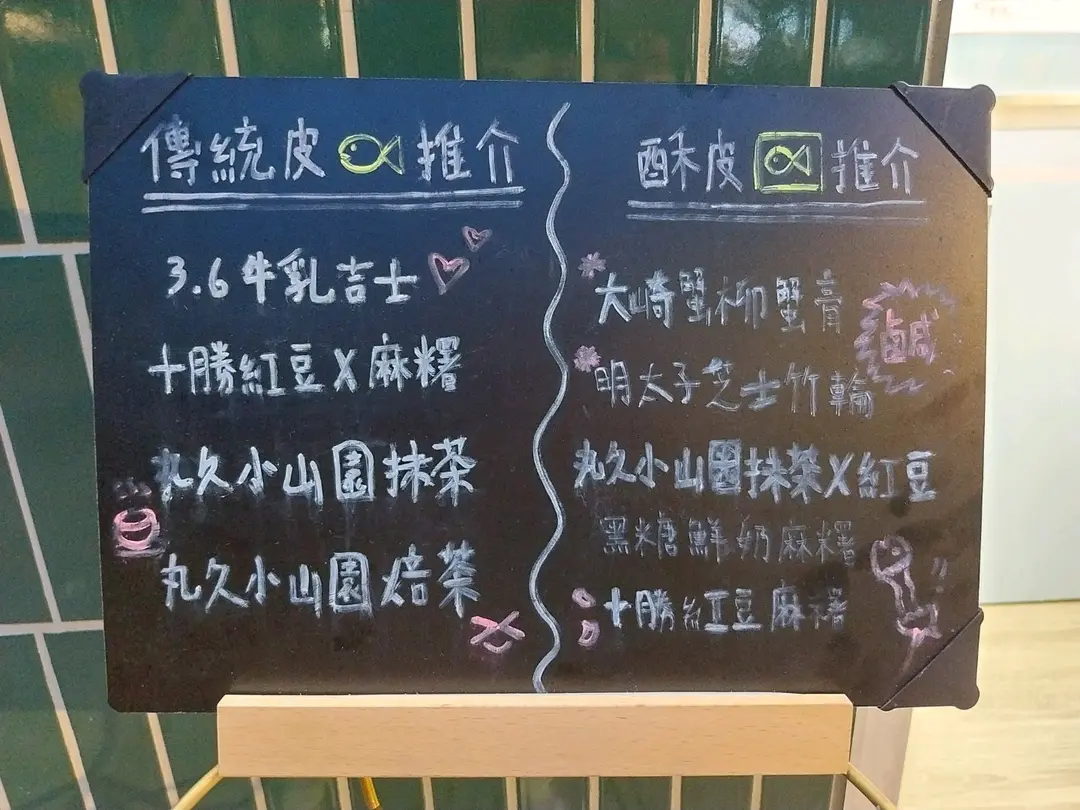 傳統皮推介
3.6牛乳吉士
十勝紅豆X麻糬
丸久小山園抹茶
丸久小山園焙茶
酥皮推介
大崎蟹柳蟹膏
鹹
明太子芝士竹輪
丸久小山園抹茶X紅豆
黑糖鮮奶麻糬
十勝紅豆麻糬